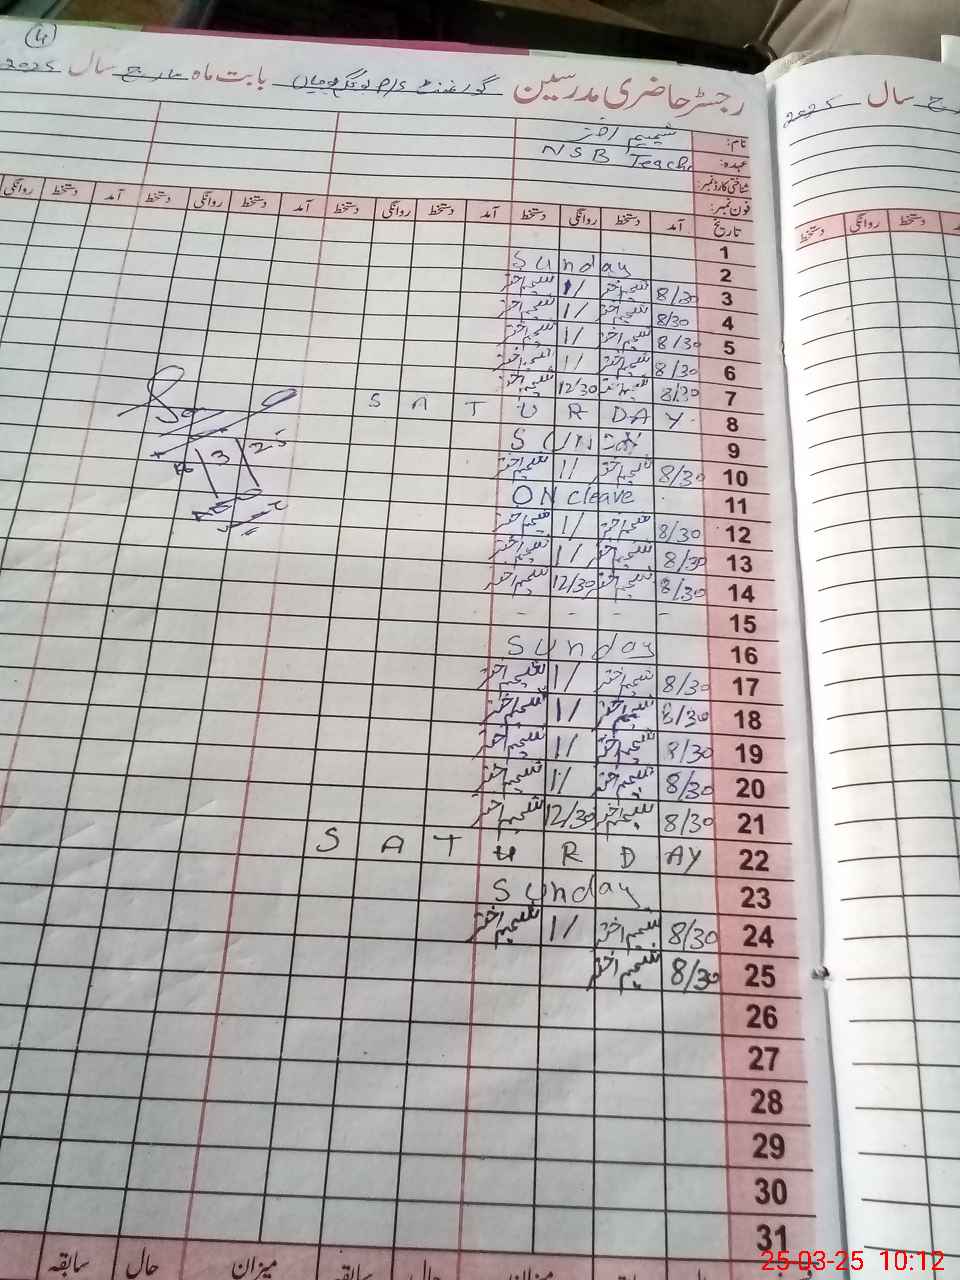 4
رجسٹر حاضری مدرسین گورنمنٹ P/S بابت ماہ مارچ سال 2025
نام: شمیم اختر
عہدہ: NSB Teacher
شناختی کارڈ نمبر:
فون نمبر:
تاریخ آمد دستخط روانگی دستخط آمد دستخط روانگی دستخط آمد دستخط روانگی دستخط آمد دستخط روانگی
1
2 Sunday
3 8/30 شمیم اختر 1/ شمیم اختر
4 8/30 شمیم اختر 1/ شمیم اختر
5 8/30 شمیم اختر 1/ شمیم اختر
6 8/30 شمیم اختر 1/ شمیم اختر
7 8/30 شمیم اختر 12/30 شمیم اختر
8 SATURDAY
9 SUNDAY
10 8/30 شمیم اختر 1/ شمیم اختر
11 ON cleave
12 8/30 شمیم اختر 1/ شمیم اختر
13 8/30 شمیم اختر 1/ شمیم اختر
14 8/30 شمیم اختر 12/30 شمیم اختر
15 - - - -
16 Sunday
17 8/30 شمیم اختر 1/ شمیم اختر
18 8/30 شمیم اختر 1/ شمیم اختر
19 8/30 شمیم اختر 1/ شمیم اختر
20 8/30 شمیم اختر 1/ شمیم اختر
21 8/30 شمیم اختر 12/30 شمیم اختر
22 SATURDAY
23 Sunday
24 8/30 شمیم اختر 1/ شمیم اختر
25 8/30 شمیم اختر
26
27
28
29
30
31
میزان حال سابقہ میزان حال سابقہ
سال 2025
دستخط روانگی دستخط
25-03-25 10:12